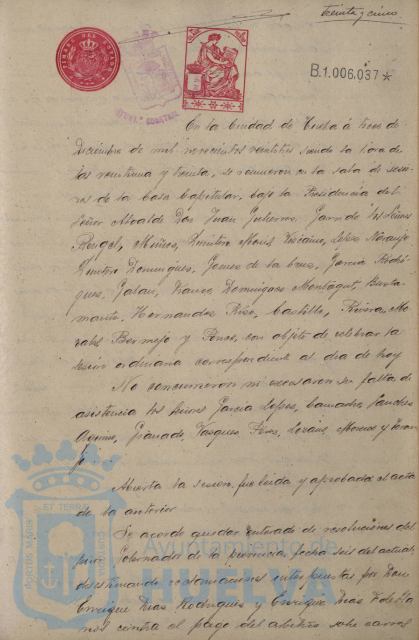 treinta y cinco
TIMBRE DEL ESTADO
B.1.006.037*
En la Ciudad de Huelva á trece de
Diciembre de mil novecientos veintitres siendo la hora de
las veintiuna y treinta, se reunieron en la sala de sesio-
nes de la Casa Capitular, bajo la Presidencia del
Señor Alcalde Don Juan Gutierrez, los Señores
Rengel, Muñoz, Quintero Moris, Vizcaino, Lopez Naranjo
Quintero Dominguez, Gomez de la Cruz, Garcia Rodri-
guez, Galan, Franco, Dominguez Montagut, Busta-
mante, Hernandez Rizo, Castilla, Rivera, Mo-
rales Bermejo y Ponce, con objeto de celebrar la
sesión ordinaria correspondiente al día de hoy
No concurrieron ni excusaron su falta de
asistencia los Señores Garcia Lopez, Camacho, Sanchez
Aquino, Granado, Vazquez Perez, Moreno y
Abierta la sesion, fué leida y aprobada el acta
de la anterior.
Se acordó quedar enterado de resoluciones del
Gobernador de la provincia, fecha seis del actual,
desestimando reclamaciones interpuestas por Don
Enrique Diaz Rodriguez y Enrique Diaz
contra el pago del arbitrio sobre
PORTUS MARIS
ET TERRÆ
Ayuntamiento de
HUELVA